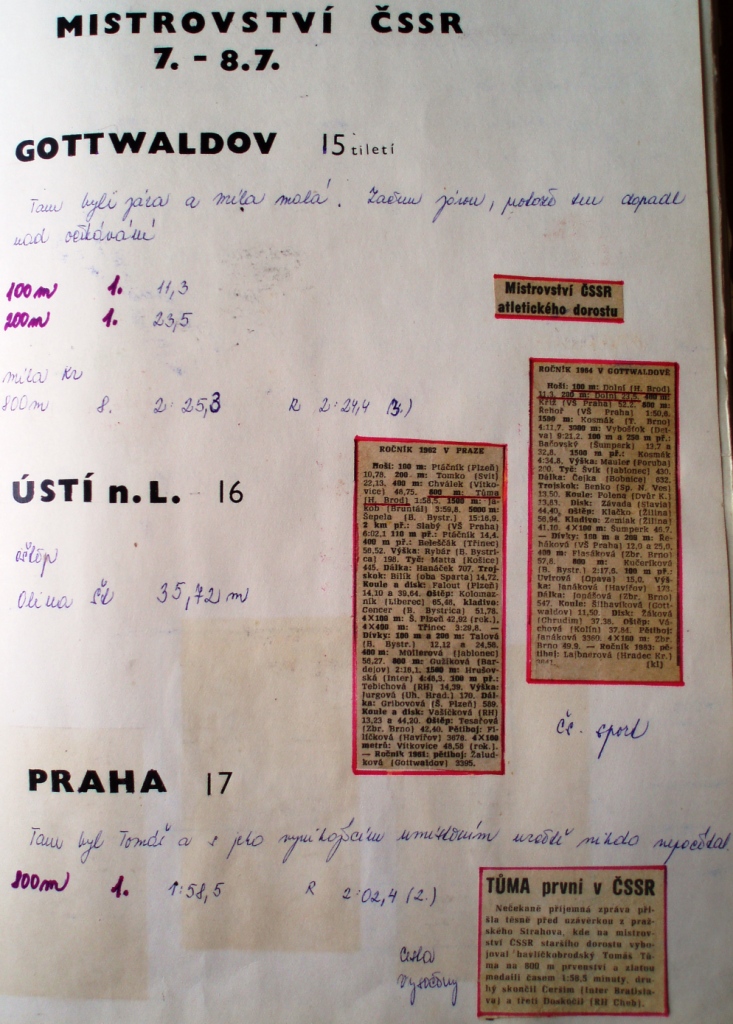 MISTROVSTVÍ ČSSR
7. - 8.7.
GOTTWALDOV 15tiletí
Tam byli Jára a Míla malá. Začnu Járou, protože ten dopadl
nad očekávání
100m 1. 11,3
200m 1. 23,5
Míla Kr
800m 8. 2:25,3 R 2:24,4 (3.)
Mistrovství ČSSR
atletického dorostu
ROČNÍK 1964 V GOTTWALDOVĚ
Hoši: 100 m: Dolní (H. Brod)
11,3, 200 m: Dolní 23,5, 400 m:
Kříž (VŠ Praha) 52,2, 800 m:
Řehoř (VŠ Praha) 1:50,6,
1500 m: Kosmák (T. Brno)
4:11,7, 3000 m: Vyboštok (Det-
va) 9:21,2, 100 m a 200 m př.:
Baťovský (Šumperk) 13,2 a
1500 m př.: Kosmák
4:34,8, Výška: Mauler (Poruba)
200, Tyč: Švik (Jablonec) 430,
Dálka: Čejka (Bohnice) 632,
Trojskok: Benko (Sp. N. Ves)
13,50, Koule: Polena (Dvůr K.)
Disk: Závada (Slavia)
44,40, Oštěp: Klačko (Žilina)
56,94, Kladivo: Zemiak (Žilina)
4X100 m: Šumperk
— Dívky: 100 m a 200 m:
(VŠ Praha) 12,9 a
400 m: Flasáková (Zbr. Brno)
800 m: Kučeříková
(B. Bystr.) 2:17,6, 100 m př.:
Uvírová (Opava) 15,0, Výška:
Janáková (Havířov) 173,
Dálka: Jopášová (Zbr. Brno)
547, Koule: Šilhavíková (Gott-
waldov) 11,50, Disk: Žáková
(Chrudim) 37,38, Oštěp:
(Kolín) 37,84, Pětiboj:
Janáková 3360, 4X100 m: Zbr.
Brno 49,9. — Ročník 1963: pě-
tiboj: Lajbnerová (Hradec Kr.)
(kl)
ROČNÍK 1962 V PRAZE
Hoši: 100 m: Ptáčník (Plzeň)
10,78, 200 m: Tomko (Svit)
22,13, 400 m: Chválek (Vítko-
vice) 48,75, 800 m: Tůma
(H. Brod) 1:58,5, 1500 m: Ja-
kob (Bruntál) 3:59,8, 5000 m:
Šepela (B. Bystr.) 15:16,9,
2 km př.: Slabý (VŠ Praha)
6:02,1 110 m př.: Ptáčník 14,4,
400 m př.: Beleščák (Třinec)
56,52, Výška: Rybár (B. Bystri-
ca) 198, Tyč: Matta (Košice)
445, Dálka: Hanáček 707, Troj-
skok: Bílík (oba Sparta) 14,72,
Koule a disk: Falout (Plzeň)
14,10 a 39,64, Oštěp: Kolomaz-
ník (Liberec) 65,46, kladivo:
Cencer (B. Bystrica) 51,78,
4X100 m: Š. Plzeň 42,92 (rok.),
4X400 m: Třinec 3:29,8. —
Dívky: 100 m a 200 m: Talová
(B. Bystr.) 12,12 a 24,56,
400 m: Müllerová (Jablonec)
56,27, 800 m: Gužiková (Bar-
dejov) 2:16,1, 1500 m: Hrušov-
ská (Inter) 4:48,3, 100 m př.:
Tebichová (RH) 14,39, Výška:
Jurgová (Uh. Hrad.) 170, Dál-
ka: Gribovová (Š. Plzeň) 589,
Koule a disk: Vašíčková (RH)
13,23 a 44,20, Oštěp: Tesařová
(Zbr. Brno) 42,40, Pětiboj: Fi-
líčková (Havířov) 3678, 4X100
metrů: Vítkovice 48,58 (rok.).
— Ročník 1961: pětiboj: Žalud-
ková (Gottwaldov) 3395.
čs. sport
ÚSTÍ n.L. 16
oštěp
Olina Šk 35,72 m
PRAHA 17
Tam byl Tomáš a s jeho vynikajícím umístěním určitě nikdo nepočítal
800m 1. 1:58,5 R 2:02,4 (2.)
Cesta
Vysočiny
TŮMA první v ČSSR
Nečekaně příjemná zpráva při-
šla těsně před uzávěrkou z praž-
ského Strahova, kde na mistrov-
ství ČSSR staršího dorostu vybo-
joval havlíčkobrodský Tomáš Tů-
ma na 800 m prvenství a zlatou
medaili časem 1:58,5 minuty, dru-
hý skončil Čeršim (Inter Bratisla-
va) a třetí Doskočil (RH Cheb).